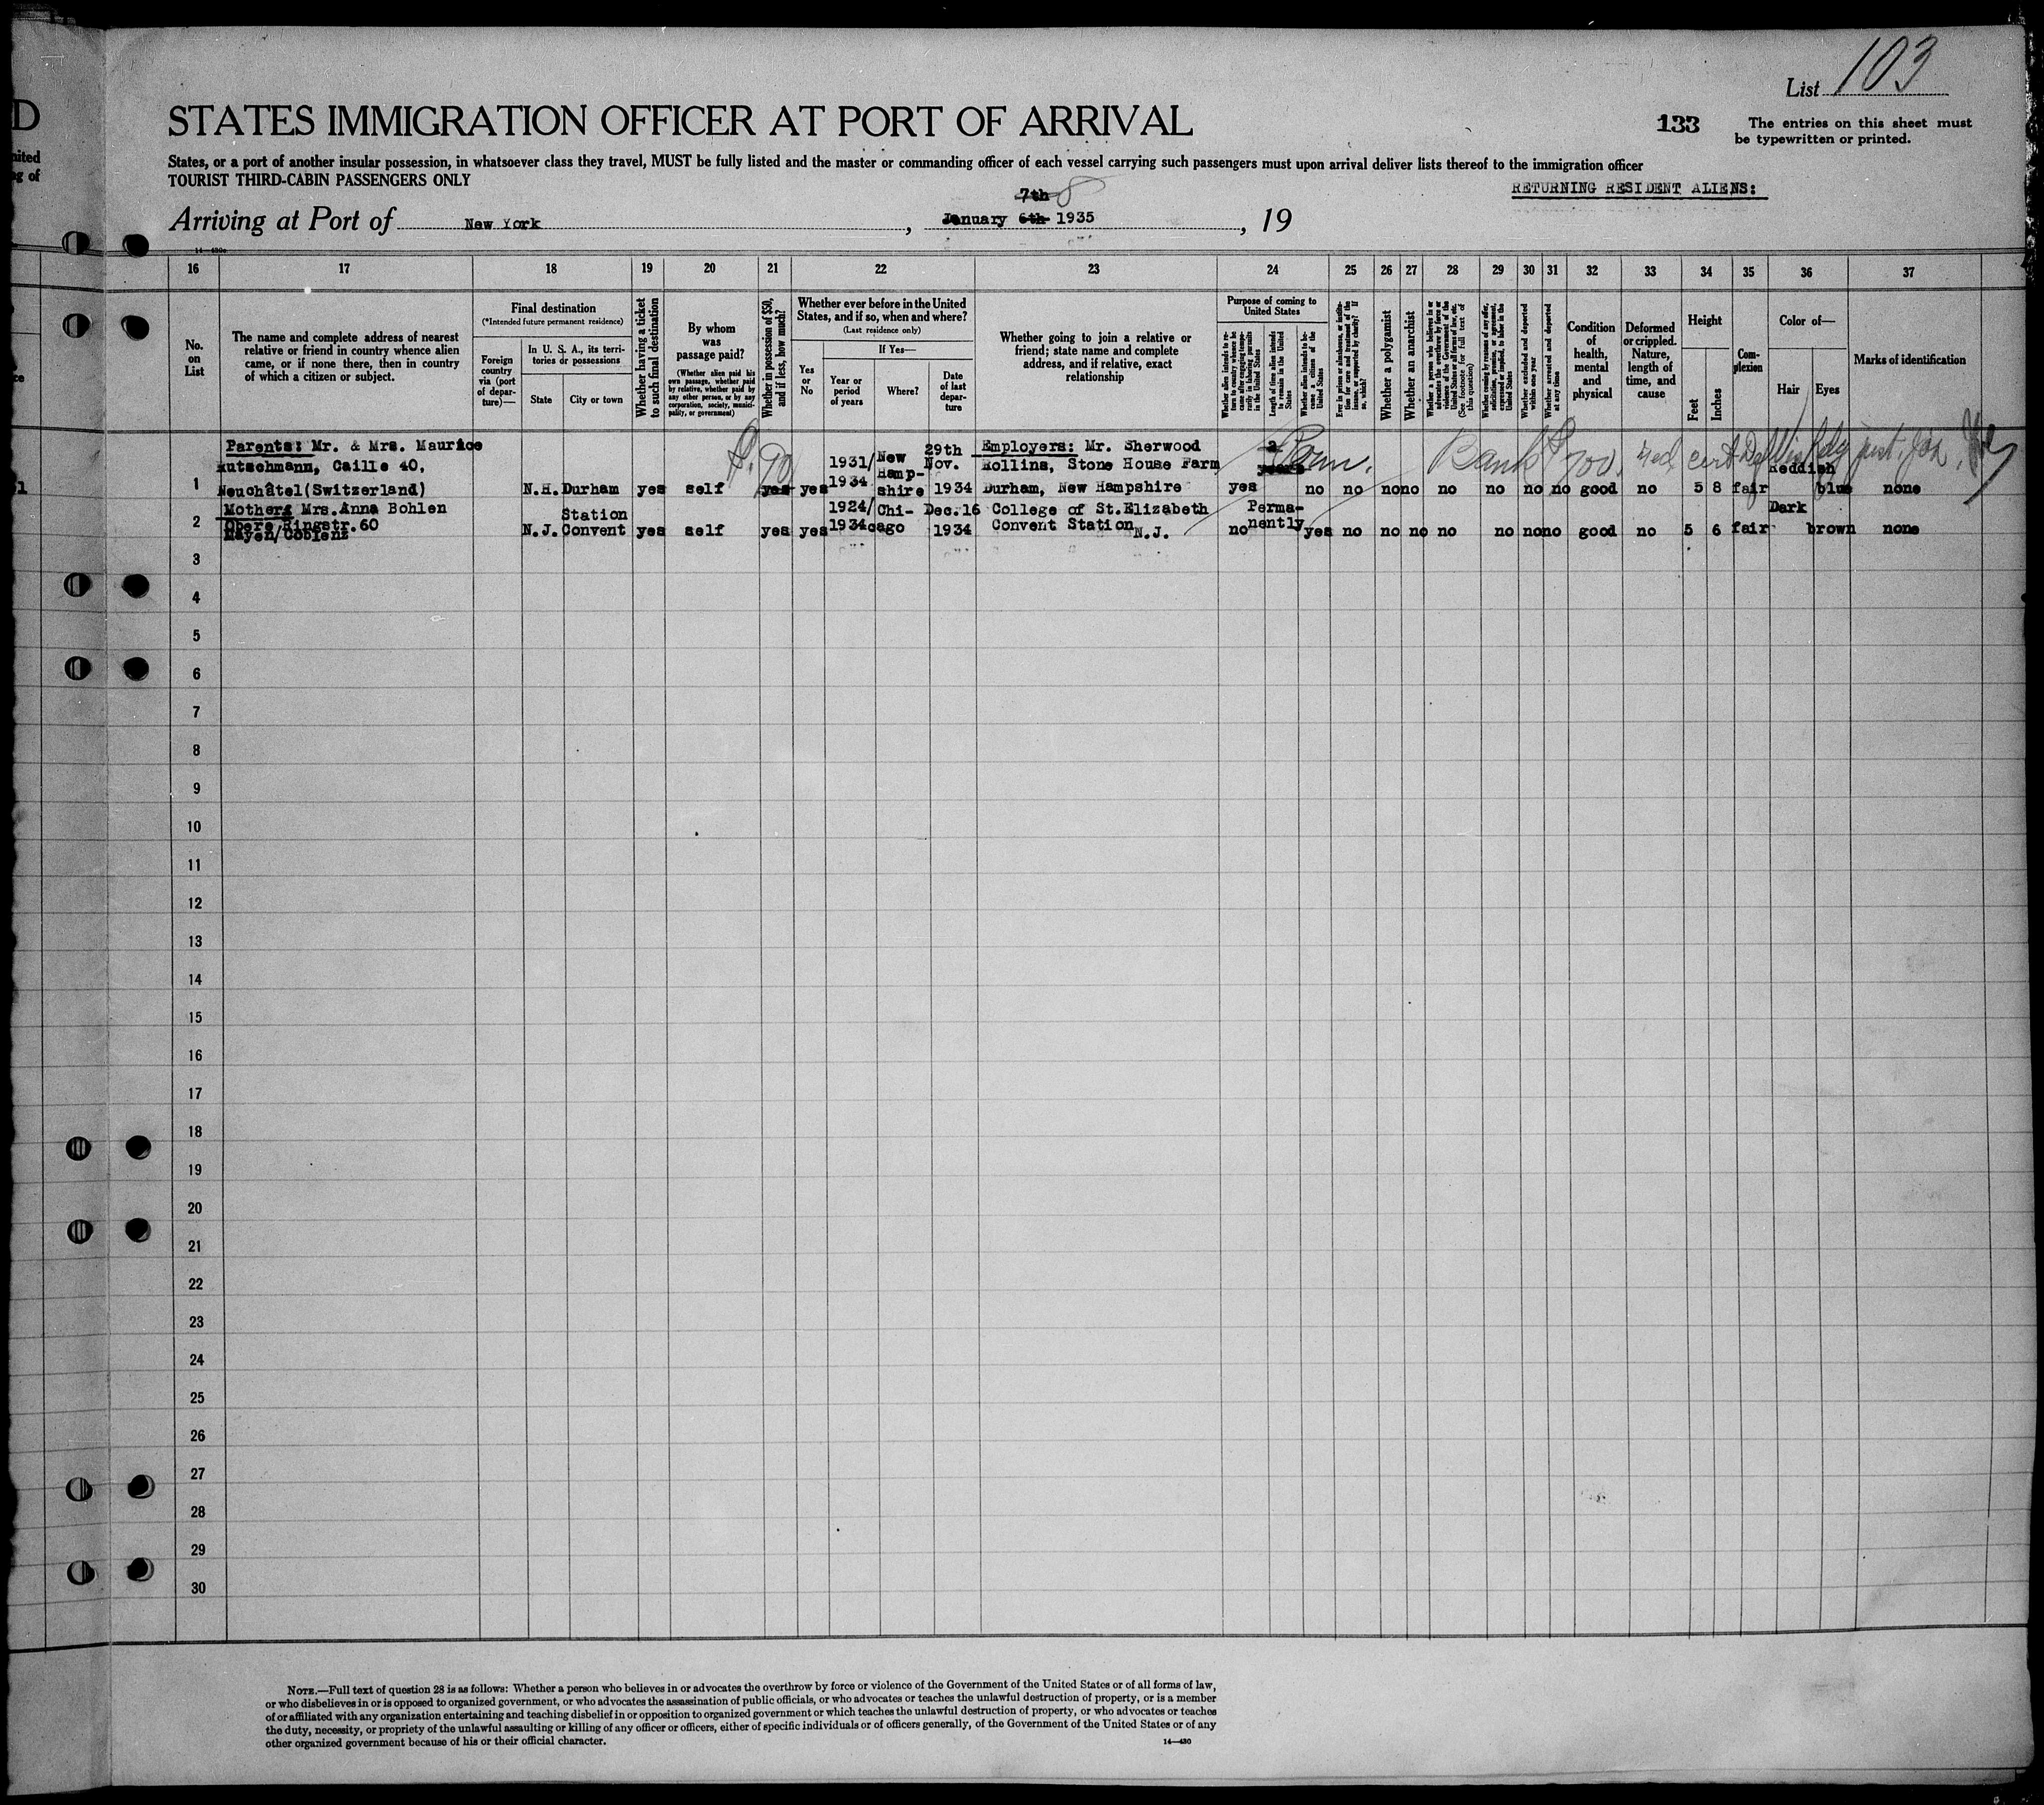 D
nited
ng of
List 103
STATES IMMIGRATION OFFICER AT PORT OF ARRIVAL
133
The entries on this sheet must
be typewritten or printed.
States, or a port of another insular possession, in whatsoever class they travel, MUST be fully listed and the master or commanding officer of each vessel carrying such passengers must upon arrival deliver lists thereof to the immigration officer
TOURIST THIRD-CABIN PASSENGERS ONLY
RETURNING RESIDENT ALIENS:
7th 8
Arriving at Port of New York, January 6th 1935, 19
14—430c
16 17 18 19 20 21 22 23 24 25 26 27 28 29 30 31 32 33 34 35 36 37
No. on List
The name and complete address of nearest
relative or friend in country whence alien
came, or if none there, then in country
of which a citizen or subject.
Final destination
(*Intended future permanent residence)
Foreign country via (port of departure)—
In U. S. A., its territories or possessions
State
City or town
Whether having a ticket to such final destination
By whom was passage paid?
(Whether alien paid his own passage, whether paid by relative, whether paid by any other person, or by any corporation, society, municipality, or government)
Whether in possession of $50, and if less, how much?
Whether ever before in the United States, and if so, when and where?
(Last residence only)
Yes or No
If Yes—
Year or period of years
Where?
Date of last departure
Whether going to join a relative or
friend; state name and complete
address, and if relative, exact
relationship
Purpose of coming to United States
Whether alien intends to return to country whence he came after engaging temporarily in laboring pursuits in the United States
Length of time alien intends to remain in the United States
Whether alien intends to become a citizen of the United States
Ever in prison or almshouse, or institution for care and treatment of the insane, or supported by charity? If so, which?
Whether a polygamist
Whether an anarchist
Whether a person who believes in or advocates the overthrow by force or violence of the Government of the United States or all forms of law, etc. (See footnote for full text of this question)
Whether coming by reason of any offer, solicitation, promise, or agreement, expressed or implied, to labor in the United States
Whether excluded and deported within one year
Whether arrested and deported at any time
Condition of health, mental and physical
Deformed or crippled. Nature, length of time, and cause
Height
Feet
Inches
Complexion
Color of—
Hair
Eyes
Marks of identification
Parents: Mr. & Mrs. Maurice
Rutschmann, Caille 40,
1 Neuchâtel(Switzerland) N.H. Durham yes self yes yes 1931/ 1934 New Hamp- shire 29th Nov. 1934
$.90
Employers: Mr. Sherwood
Rollins, Stone House Farm
Durham, New Hampshire
yes 2 years Perm. no no no no no no no no good no 5 8 fair Reddish blue none
Bank $700.
Mother: Mrs.Anna Bohlen
2 Obere Ringstr.60
Mayen/Coblenz
N.J. Station Convent yes self yes yes 1924/ 1934 Chi- cago Dec.16 1934
College of St.Elizabeth
Convent Station N.J.
no Perma- nently yes no no no no no no no good no 5 6 fair Dark brown none
3
4
5
6
7
8
9
10
11
12
13
14
15
16
17
18
19
20
21
22
23
24
25
26
27
28
29
30
NOTE.—Full text of question 28 is as follows: Whether a person who believes in or advocates the overthrow by force or violence of the Government of the United States or of all forms of law,
or who disbelieves in or is opposed to organized government, or who advocates the assassination of public officials, or who advocates or teaches the unlawful destruction of property, or is a member
of or affiliated with any organization entertaining and teaching disbelief in or opposition to organized government or which teaches the unlawful destruction of property, or who advocates or teaches
the duty, necessity, or propriety of the unlawful assaulting or killing of any officer or officers, either of specific individuals or of officers generally, of the Government of the United States or of any
other organized government because of his or their official character.
14—430